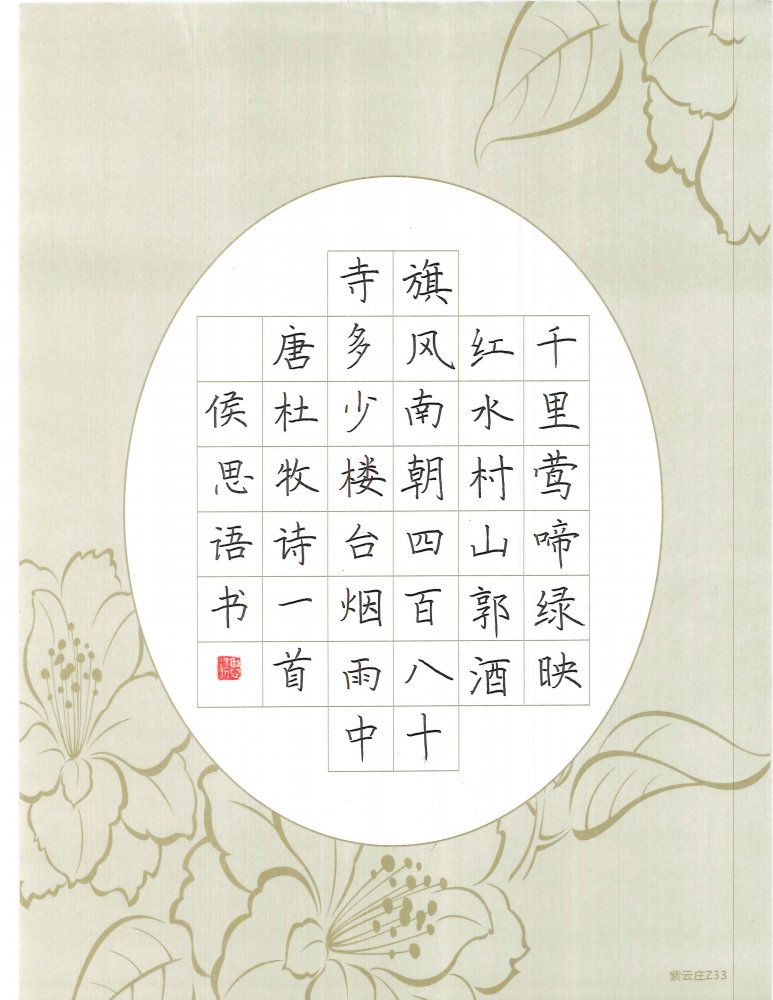 千里莺啼绿映
红水村山郭酒
旗风南朝四百八十
寺多少楼台烟雨中
唐杜牧诗一首
侯思语书
紫云庄Z33